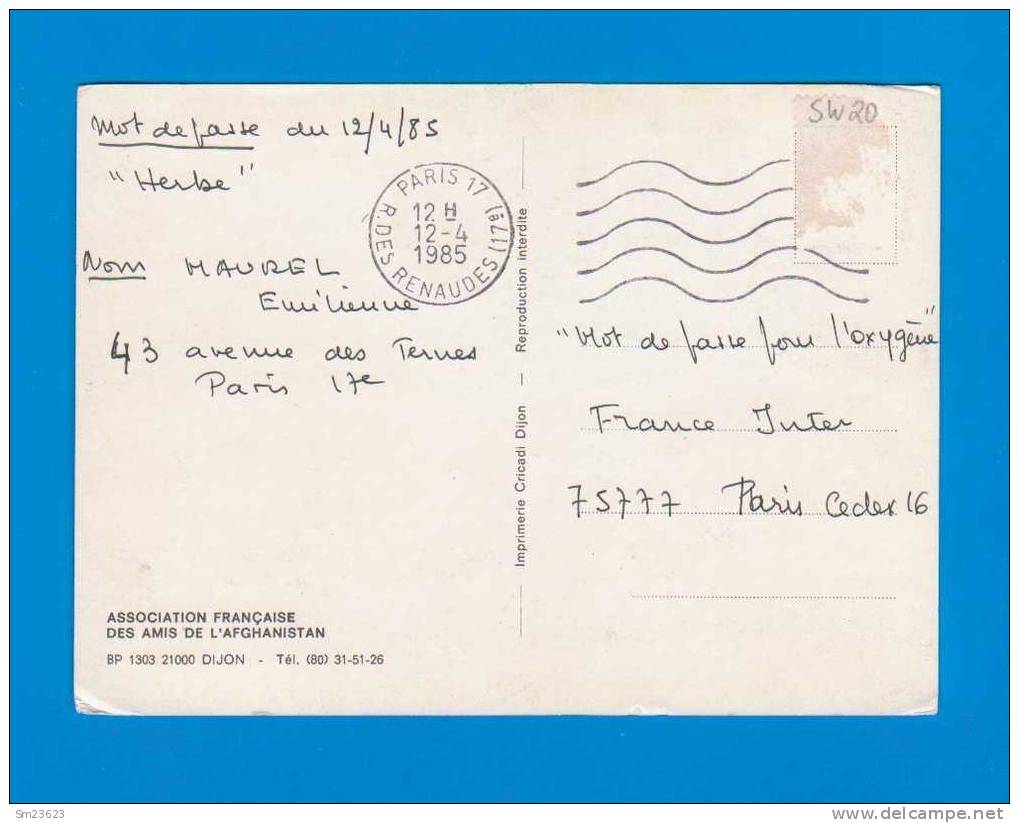 Mot de passe du 12/4/85
"Herbe"
Nom MAUREL
Emilienne
43 avenue des Ternes
Paris 17e
PARIS 17
R. DES RENAUDES (17è)
12 H
12-4
1985
ASSOCIATION FRANÇAISE
DES AMIS DE L'AFGHANISTAN
BP 1303 21000 DIJON - Tél. (80) 31-51-26
Imprimerie Cricadi Dijon — Reproduction interdite
SW20
"Mot de passe pour l'oxygène"
France Inter
75777 Paris Cedex 16
Sm23623
www.delcampe.net